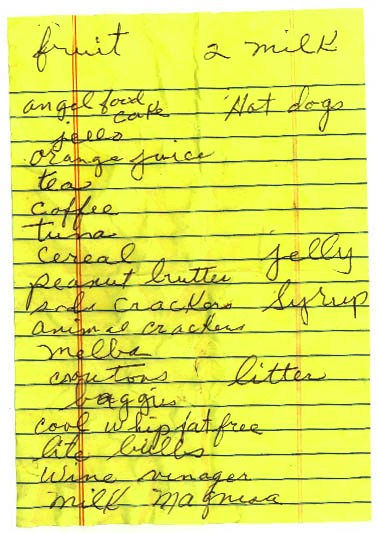 fruit 2 milk
angel food cake Hot dogs
jello
orange juice
tea
coffee
tuna
cereal jelly
peanut butter
soda crackers Syrup
animal crackers
melba
croutons litter
baggies
cool whip/fat free
lite bulbs
wine vinager
milk magnesa